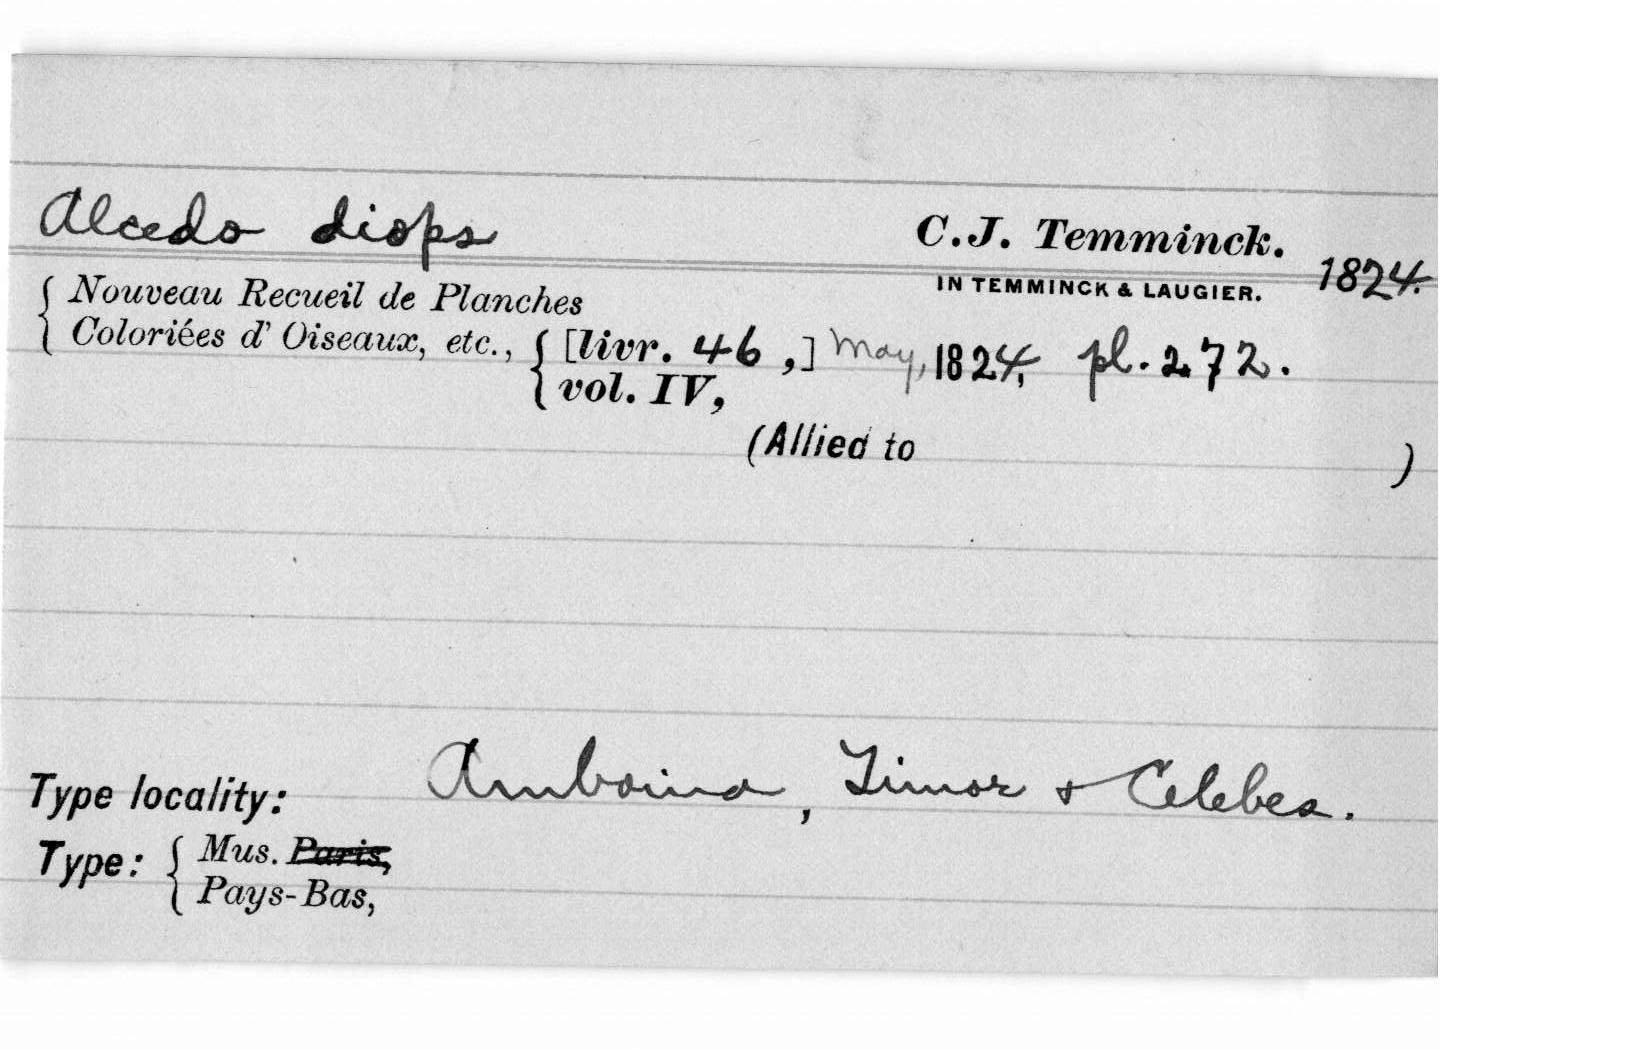 Alcedo diops C.J. Temminck. 1824.
IN TEMMINCK & LAUGIER.
Nouveau Recueil de Planches
Coloriées d' Oiseaux, etc., [livr. 46 ,] May, 1824, pl. 272.
vol. IV,
(Allied to )
Type locality: Amboina, Timor & Celebes.
Type: Mus. Paris,
Pays-Bas,